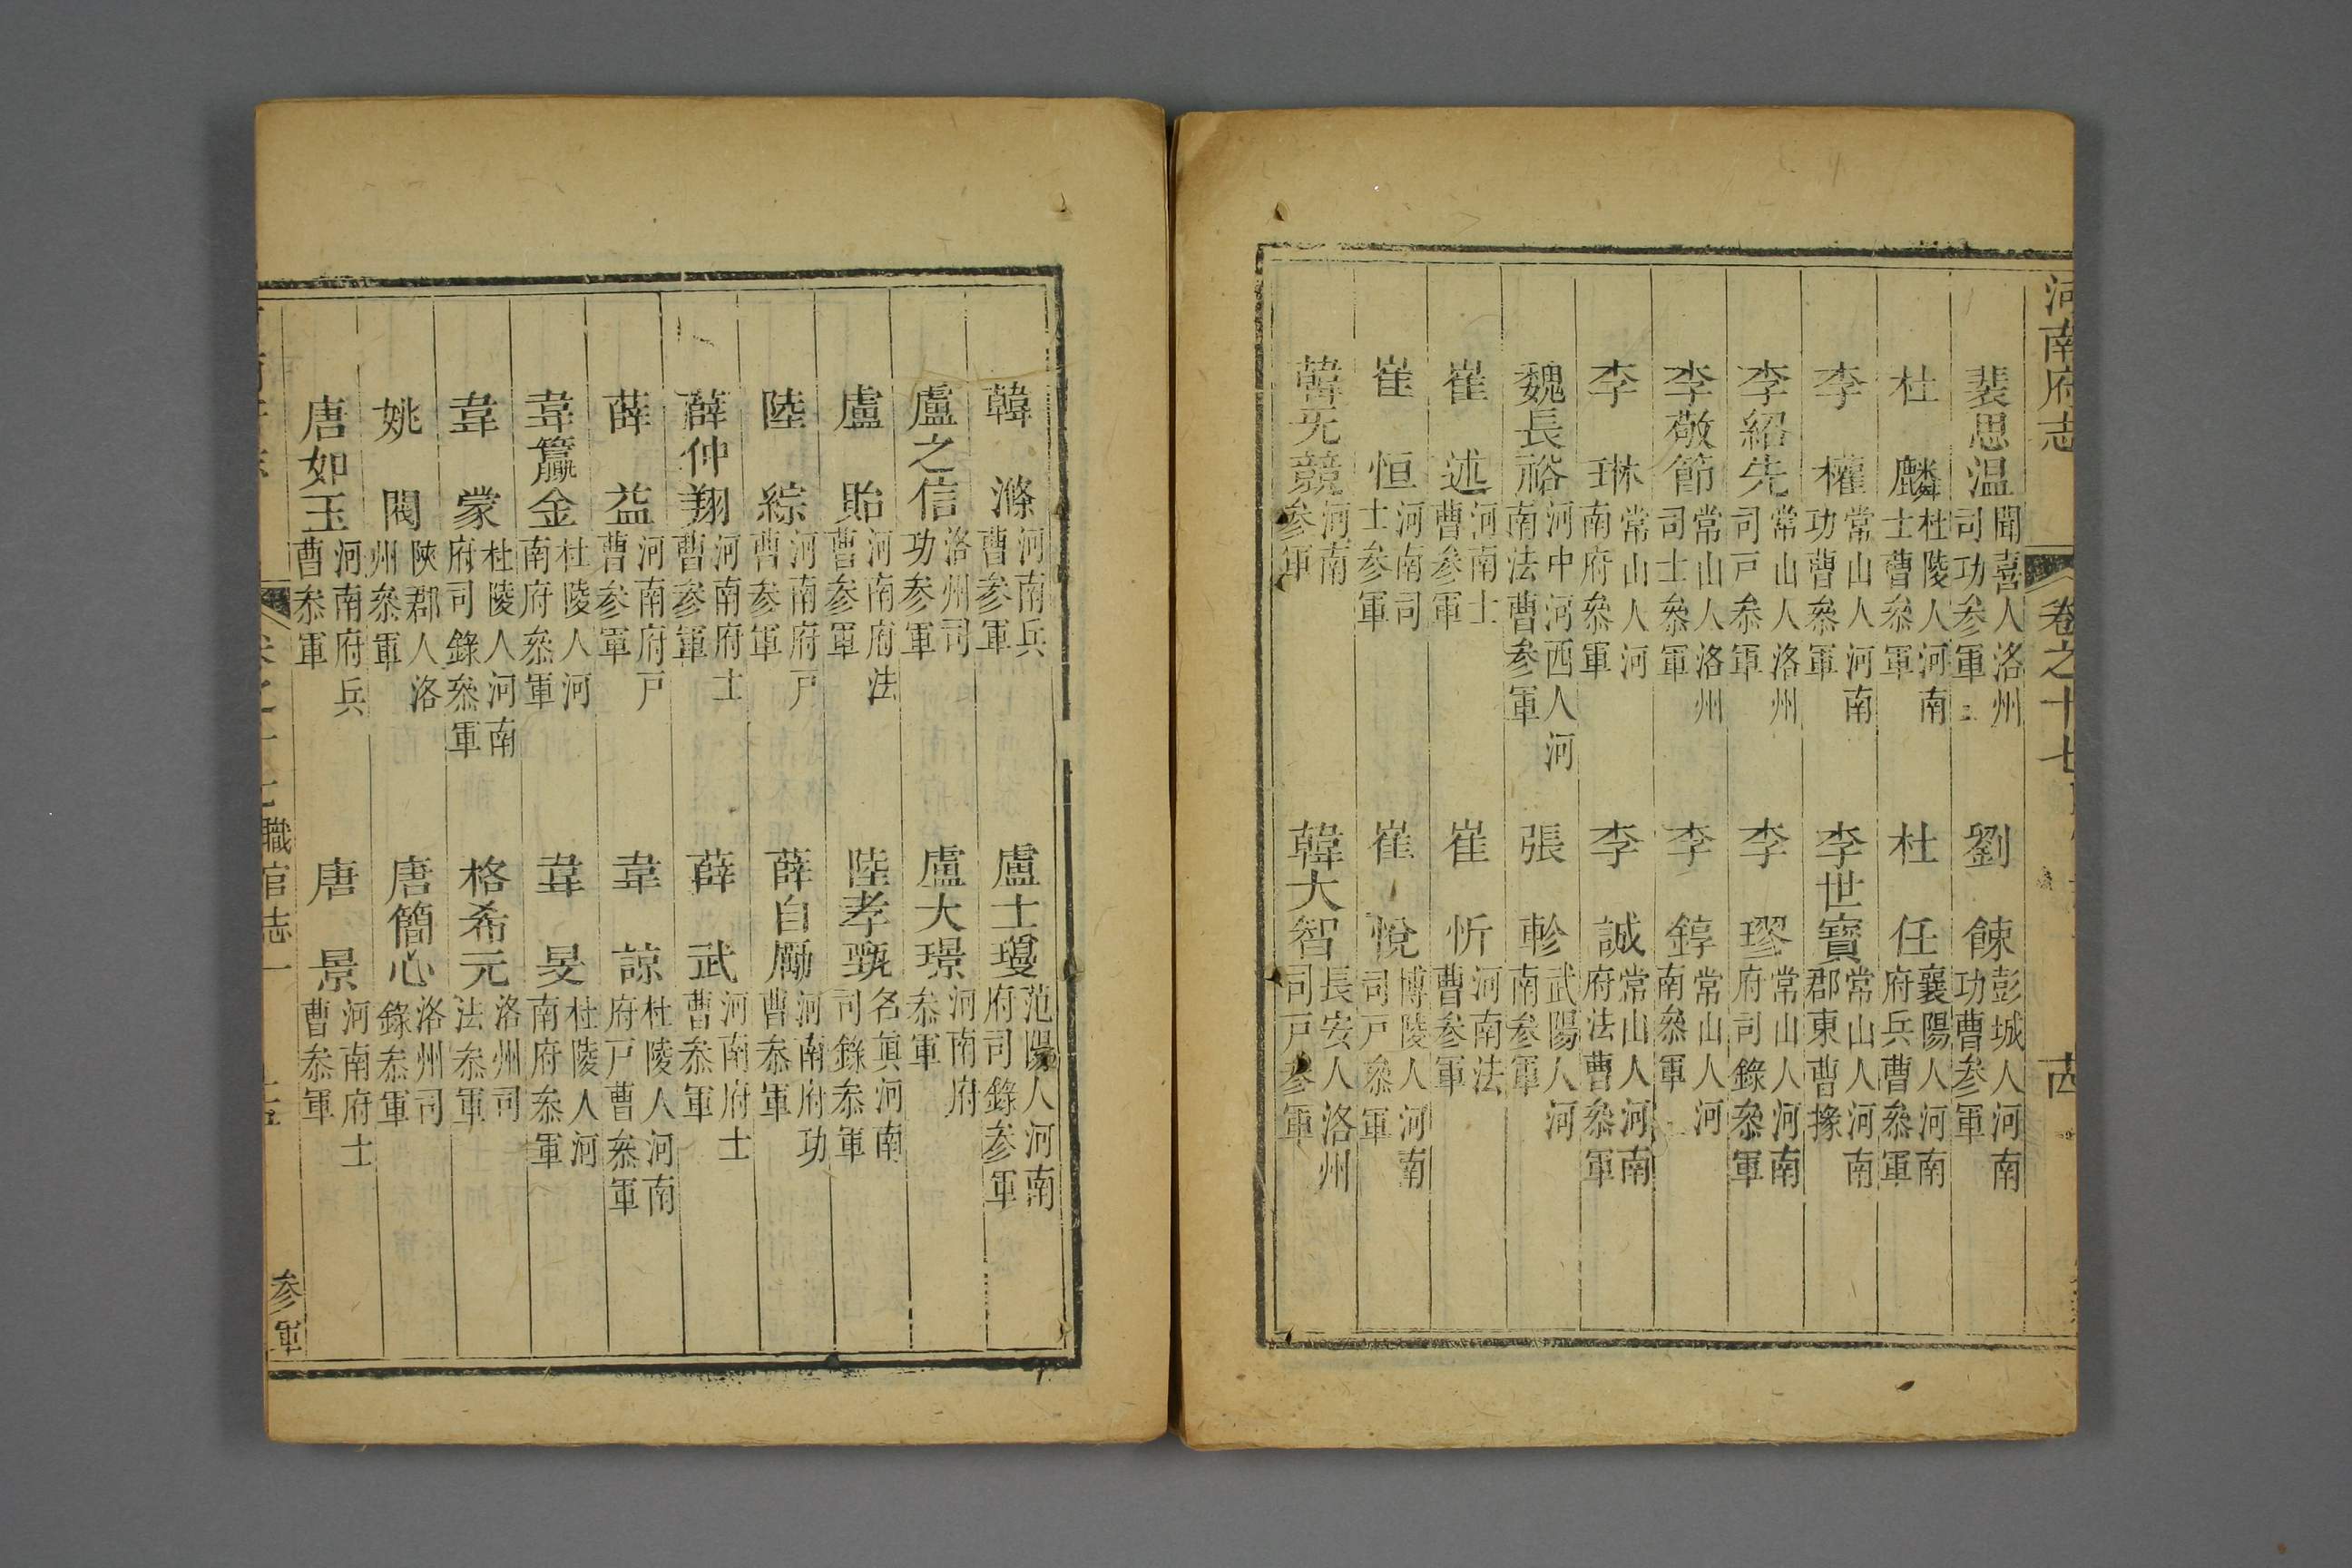 河南府志
卷之十七
裴思温 聞喜人洛州司功參軍
劉餗 彭城人河南功曹參軍
杜麟 杜陵人河南士曹叅軍
杜任 襄陽人河南府兵曹叅軍
李權 常山人河南功曹叅軍
李世寶 常山人河南郡東曹掾
李紹先 常山人洛州司戸叅軍
李璆 常山人河南府司錄叅軍
李敬節 常山人洛州司士叅軍
李錞 常山人河南叅軍
李琳 常山人河南府叅軍
李誠 常山人河南府法曹叅軍
魏長裕 河中河西人河南法曹參軍
張軫 武陽人河南參軍
崔述 河南士曹參軍
崔忻 河南法曹參軍
崔恒 河南司士參軍
崔悅 博陵人河南司戸叅軍
韓旡競 河南參軍
韓大智 長安人洛州司戸參軍
韓滌 河南兵曹參軍
盧士瓊 范陽人河南府司錄參軍
盧之信 洛州司功參軍
盧大璟 河南府叅軍
盧貽 河南府法曹參軍
陸孝甄 河南司錄叅軍
陸綜 河南府戸曹參軍
薛自勵 河南府功曹叅軍
薛仲翔 河南府士曹參軍
薛武 河南府士曹叅軍
薛益 河南府戸曹參軍
韋諒 杜陵人河南府戸曹叅軍
韋籝金 杜陵人河南府叅軍
韋旻 杜陵人河南府叅軍
韋蒙 杜陵人河南府司錄叅軍
格希元 洛州司法叅軍
姚閱 陝郡人洛州叅軍
唐簡心 洛州司錄叅軍
唐如玉 河南府兵曹叅軍
唐景 河南府士曹叅軍
職官志一
參軍